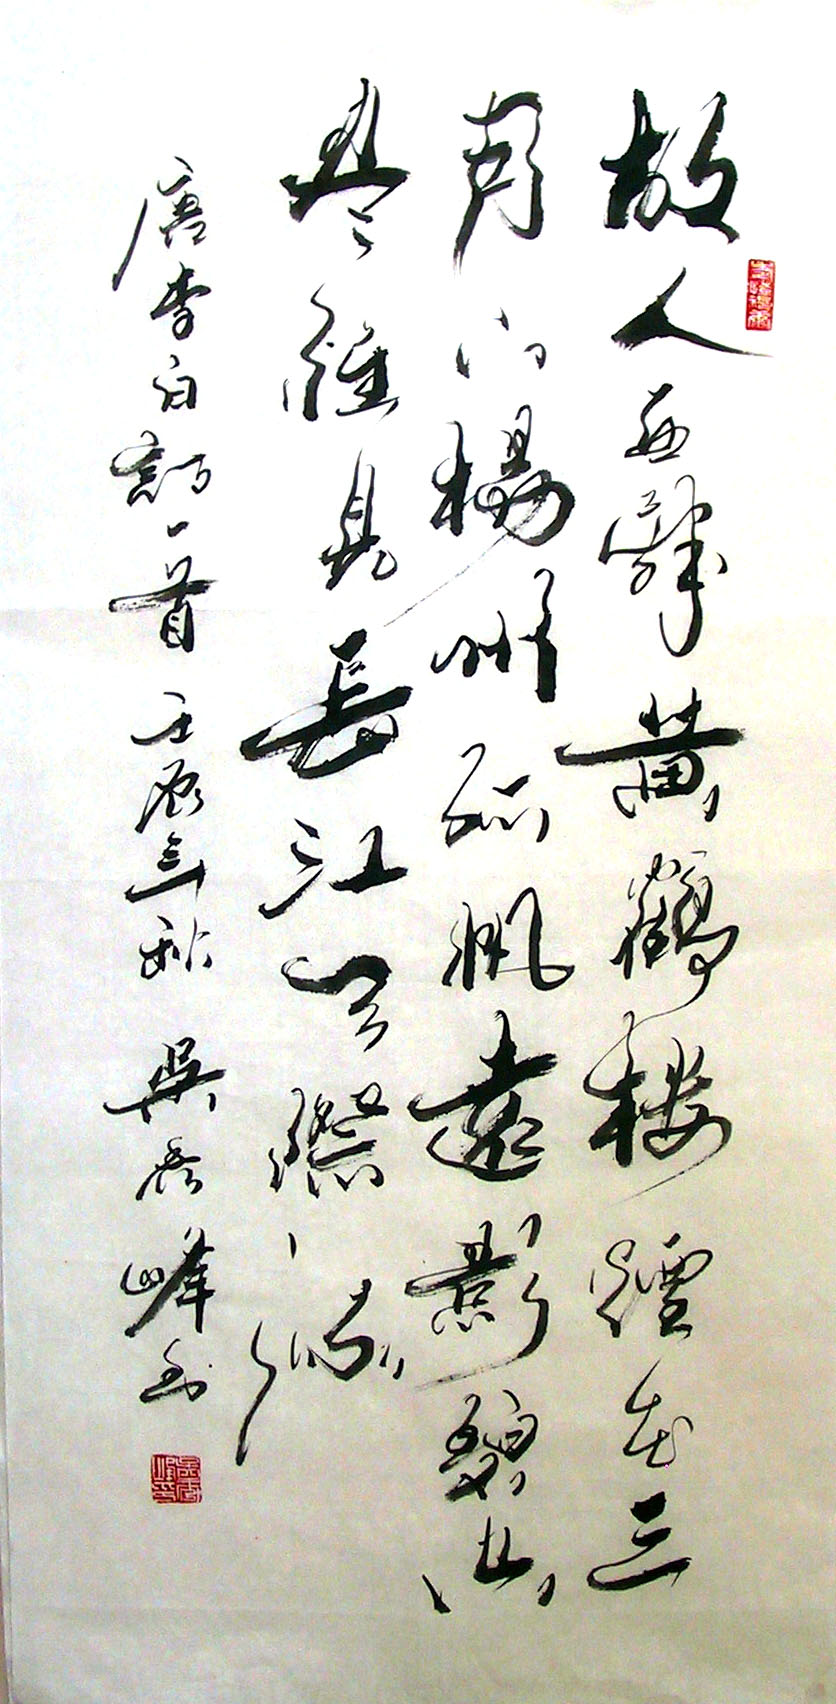 故人西辭黃鶴樓煙花三
月下楊州孤帆遠影碧山
盡惟見長江天際流
唐李白詩一首 壬辰年秋 吳 峰書